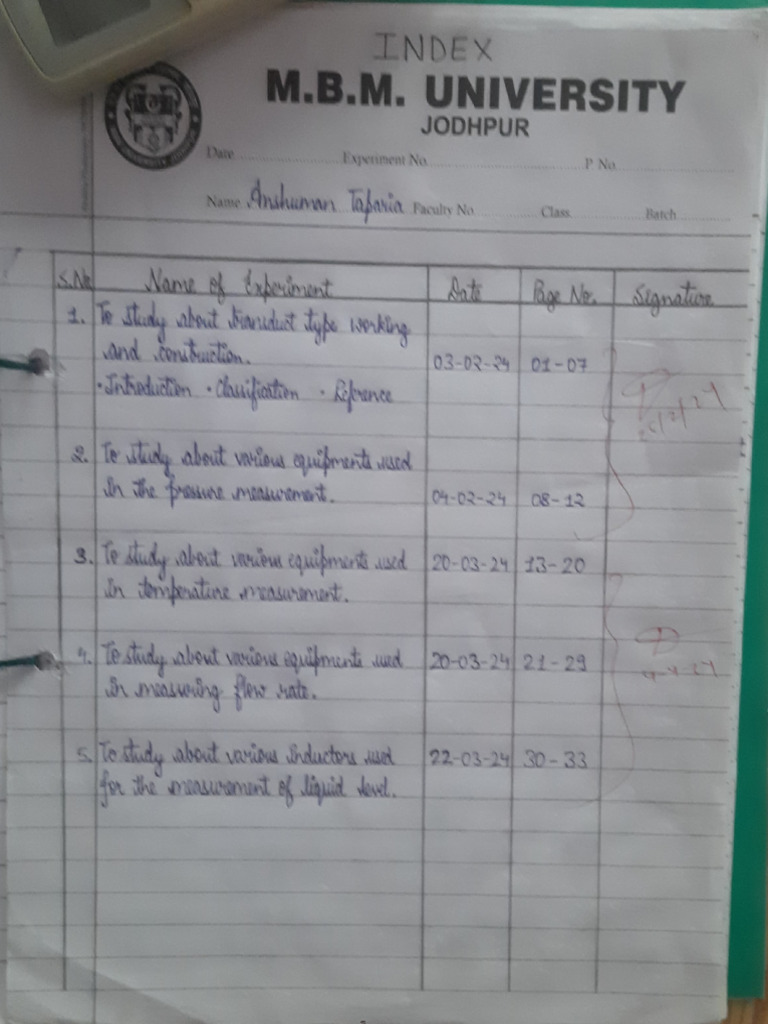 INDEX
M.B.M. UNIVERSITY
JODHPUR
Date Experiment No. P. No.
Name Anshuman Taparia Faculty No. Class Batch
S.No. Name of Experiment Date Page No. Signature
1. To study about transduct type working
and constuction. 03-02-24 01-07
• Introduction • Classification • Reference
2. To study about various equipments used
in the pressure measurement. 04-02-24 08-12
3. To study about various equipments used 20-03-24 13-20
in temperature measurement.
4. To study about various equipments used 20-03-24 21-29
in measuring flow rate.
5. To study about various inductors used 22-03-24 30-33
for the measurement of liquid level.